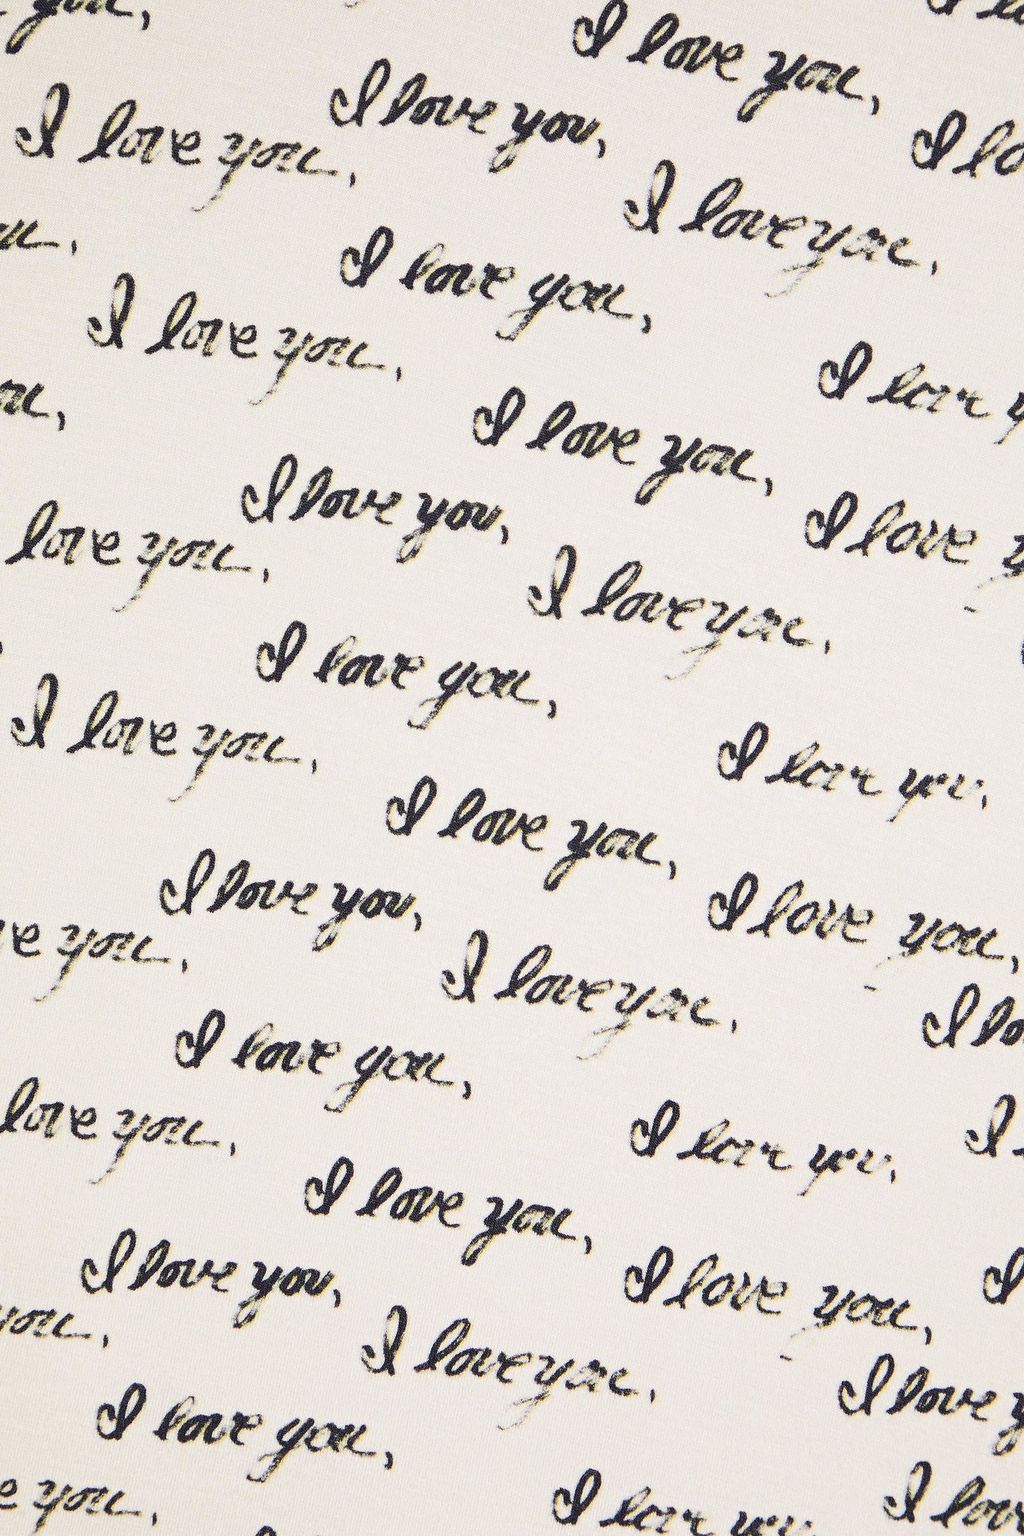 you,
I love you,
I love you,
I love you,
I lo
I love you,
u,
I love you,
I love you,
I love
u,
I love you,
I love you,
I love y
love you,
I love you,
I love you,
I love you,
I love you,
I love you,
I love you,
I love you,
ve you,
I love you,
I lo
I love you,
I love you,
I
love you,
I love you,
I love you,
I love you,
I
you,
I love you,
I love y
I love you,
e you,
I love you,
I love